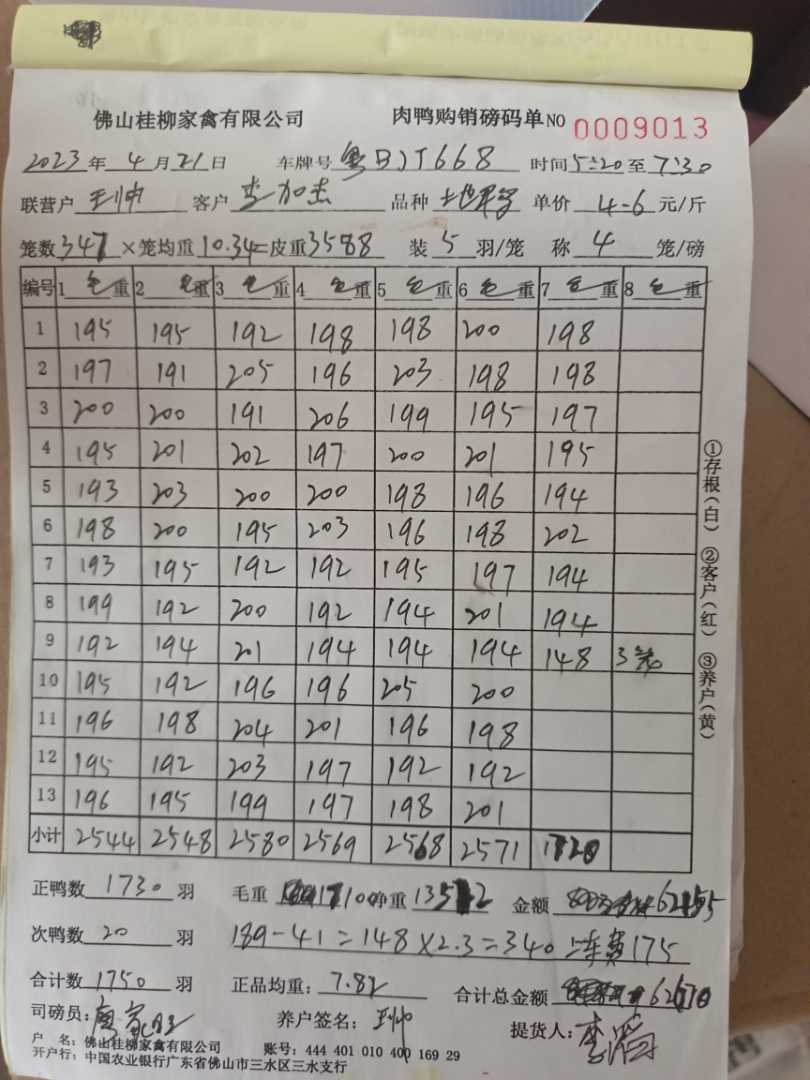 佛山桂柳家禽有限公司 肉鸭购销磅码单NO 0009013
2023年4月21日 车牌号粤BJT668 时间5:20至7:30
联营户 王帅 客户 李加杰 品种 单价4-6元/斤
笼数347×笼均重10.34=皮重3588 装5羽/笼 称4笼/磅
编号 1毛重 2毛重 3毛重 4毛重 5毛重 6毛重 7毛重 8毛重
1 195 195 192 198 198 200 198
2 197 191 205 196 203 198 198
3 200 200 191 206 199 195 197
4 195 201 202 197 200 201 195
5 193 203 200 200 198 196 194
6 198 200 195 203 196 198 202
7 193 195 192 192 195 197 194
8 199 192 200 192 194 201 194
9 192 194 201 194 194 194 148 3笼
10 195 192 196 196 205 200
11 196 198 204 201 196 198
12 195 192 203 197 192 192
13 196 195 199 197 198 201
小计 2544 2548 2580 2569 2568 2571 1720
正鸭数1730羽 毛重17100净重13512 金额62155
次鸭数20羽 189-41=148×2.3=340 上车费175
合计数1750羽 正品均重:7.82 合计总金额62670
司磅员: 养户签名:王帅 提货人:
户 名:佛山桂柳家禽有限公司 账号:444 401 010 400 169 29
开户行:中国农业银行广东省佛山市三水区三水支行
①存根(白) ②客户(红) ③养户(黄)